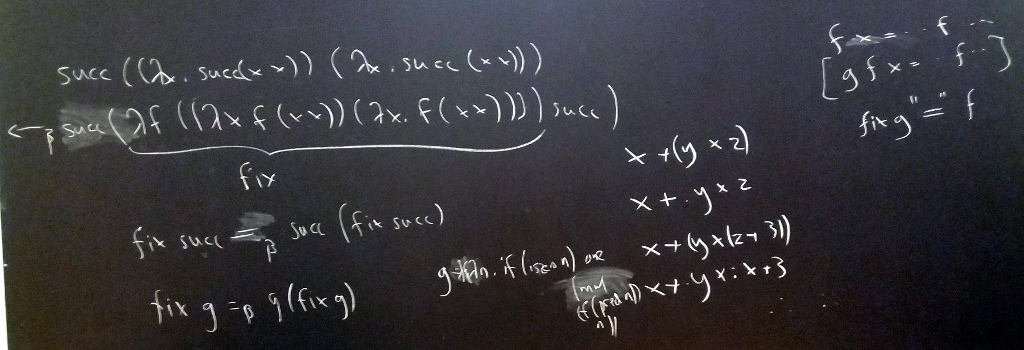 succ ((λx. succ(x x)) (λx. succ (x x)))
←β succ (λf ((λx f (x x)) (λx. f (x x)))) succ)
fix
fix succ =β succ (fix succ)
fix g =β g (fix g)
g λn. if (iszero n) one
(mul
(f (pred n))
n))
x + (y × z)
x + . y × z
x + (y × (z + 3))
x + . y × : x + 3
f x = ... f ...
[g f x = ... f ...]
fix g "=" f